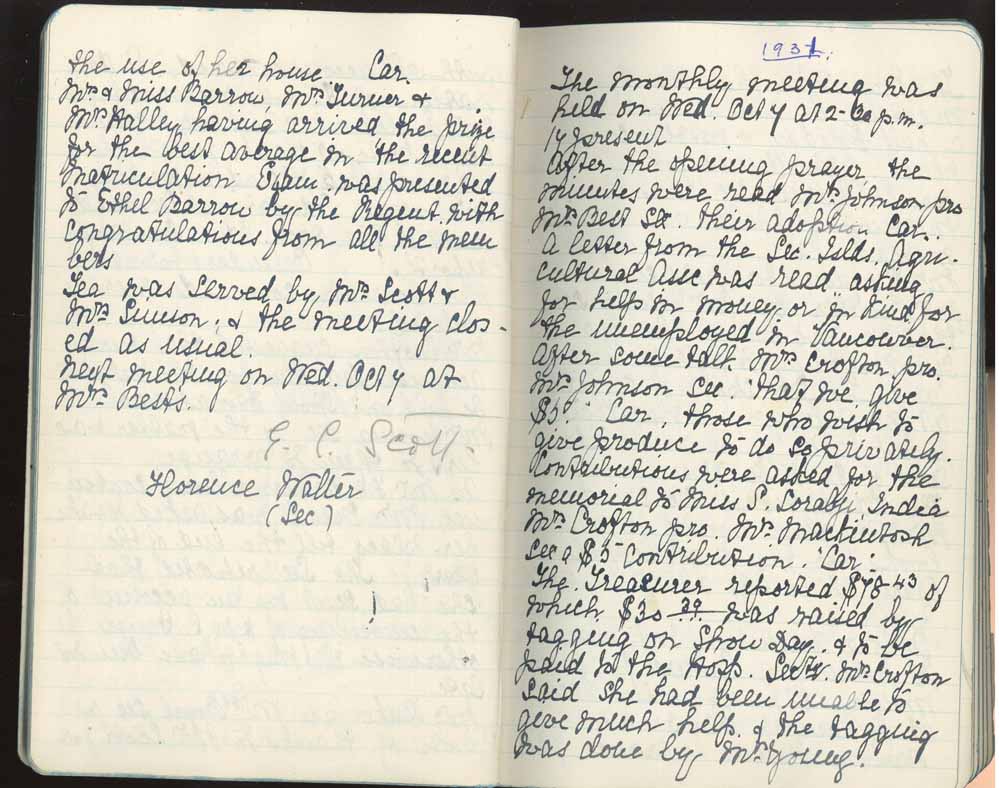 the use of her house Car.
Mrs & Miss Barrow, Mrs Turner &
Mrs Halley, having arrived the prize
for the best average in the recent
Matriculation Exam: was presented
to Ethel Barrow by the Regent with
congratulations from all the mem
bers
Tea was served by Mrs Scott &
Mrs Simson, & the meeting clos-
ed as usual.
Next meeting on Wed. Oct 7 at
Mrs Bests.
E C Scott.
Florence Walter
(Sec)
1931.
The monthly meeting was
held on Wed. Oct 7 at 2-30 p.m.
14 present
After the opening prayer the
minutes were read Mrs Johnson pro
Mrs Best Sec. their adoption Car.
A letter from the Sec. Islds. Agri-
cultural Assc was read asking
for help in money or in kind for
the unemployed in Vancouver.
After some talk Mrs Crofton, pro.
Mrs Johnson sec. that we give
$5. Car. those who wish to
give produce to do so privately.
Contributions were asked for the
memorial to Miss S. Sorabji India
Mrs Crofton pro. Mrs Mackintosh
sec a $5 contribution. Car.
The Treasurer reported $78-43 of
which $30 was raised by
tagging on Show Day, & to be
paid to the Hosp. Secty. Mrs Crofton
said she had been unable to
give much help, & the tagging
was done by Mrs Young.